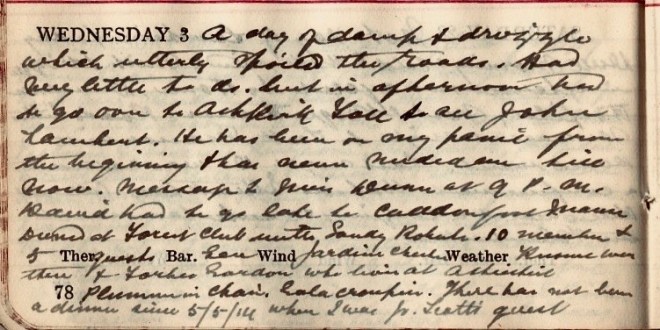 WEDNESDAY 3 A day of damp & drizzle
which utterly spoiled the roads. Had
very little to do. but in afternoon had
to go over to Ashkirk Toll to see John
Lambert. He has been on my panel from
the beginning & has never needed me till
now. Message to Miss Dunn at 9 P.M.
David had to go late to Caddonfoot I
Dined at Forest Club with Sandy Roberts. 10 members &
5 Ther. guests Bar. Wind Jardine Weather. were
there & Forbes Gordon who lives at Ashkirk
78 Plummer in Chair. croupier. There has not been
a dinner since 5/5/14 when I was Jr. Scott's guest